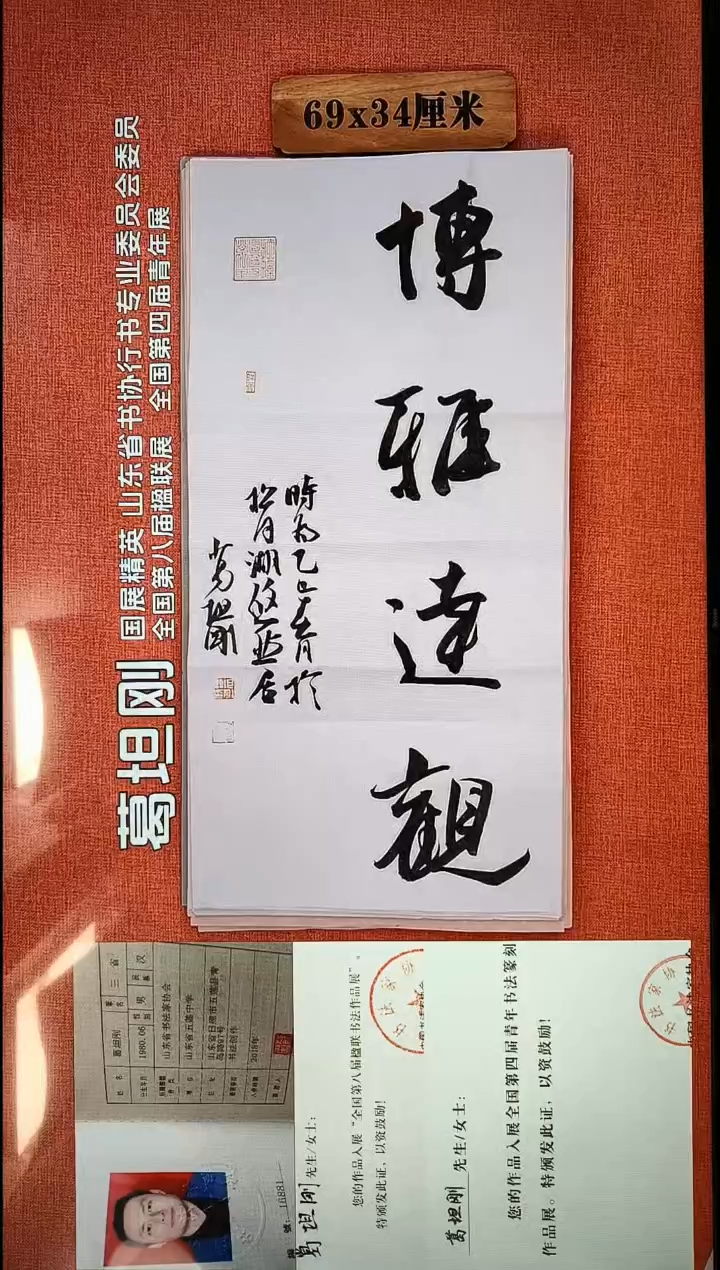 69x34厘米
博雅達觀
時為乙巳春月於
松月湖悠然居
葛坦剛
葛坦刚
国展精英 山东省书协行书专业委员会委员
全国第八届楹联展 全国第四届青年展
葛坦刚
1980.06
男
汉
山东省书法家协会
山东省五莲中学
书法创作
16881
葛坦刚 先生/女士:
您的作品入展“全国第八届楹联书法作品展”。
特颁发此证,以资鼓励!
葛坦刚 先生/女士:
您的作品入展全国第四届青年书法篆刻
作品展。特颁发此证,以资鼓励!